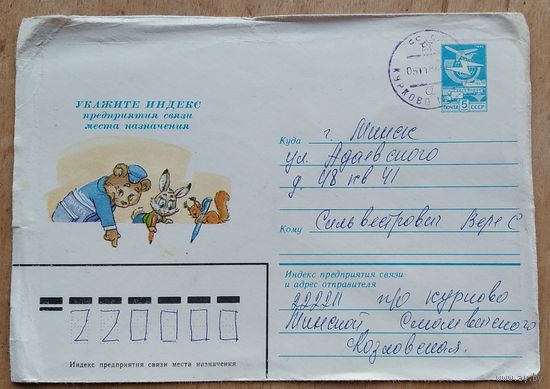 УКАЖИТЕ ИНДЕКС
предприятия связи
места назначения
ПОЧТА 5 СССР
КУРКОВО
Куда г. Минск
ул Адаевского
д. 48 кв 41
Кому Сильвестрович Вере С
Индекс предприятия связи
и адрес отправителя
222211 п/о Курково
Минской Смолевичского
Козловская.
220000
Индекс предприятия связи места назначения